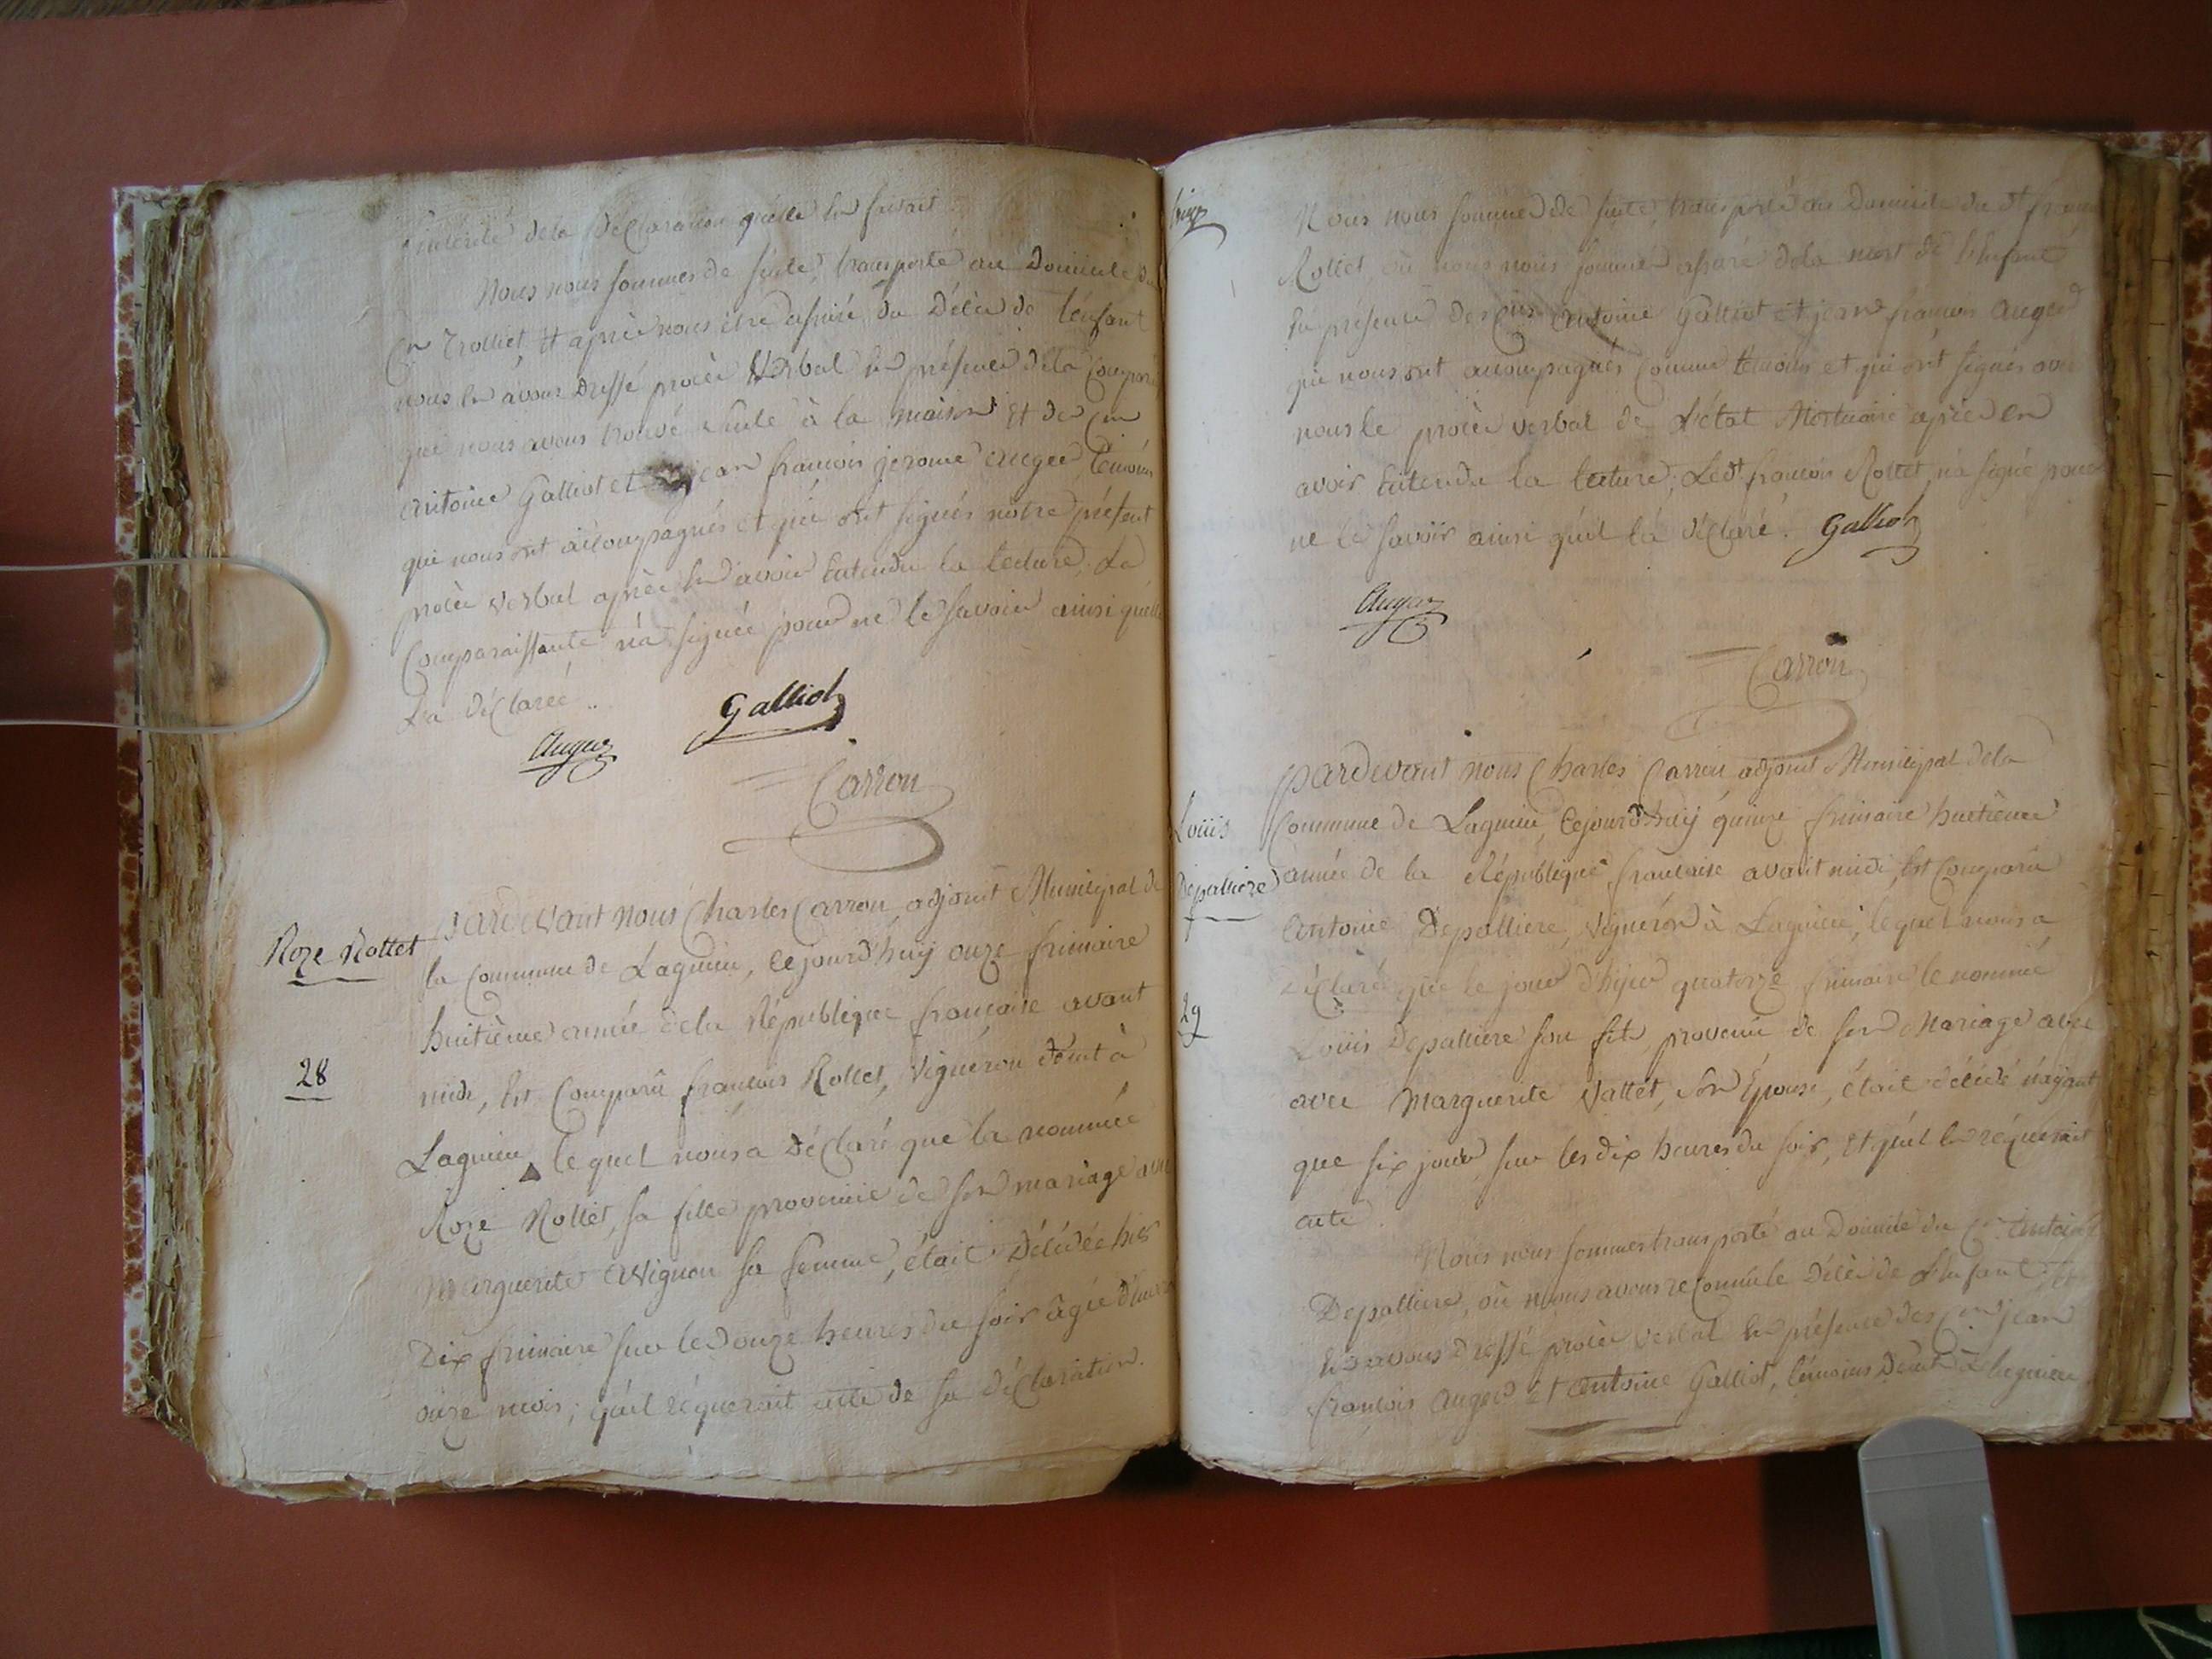 sincérité dela déclaration quelle en faisait
Nous nous sommes de suite, transporté au Domicile du
Cn Trolliet, Et après nous être assuré du Décès de l'énfant
nous en avons Dressé procès Verbal En présence dela Compar
que nous avons trouvé seule à la maison Et des Cns
antoine Galliot et jean francois jerome auger, témoins
qui nous ont accompagnés et qui ont signés notre présent
procès verbal après En avoir Entendu la lecture, La
Comparaissante n'a signée pour ne le savoir ainsi quelle
La déclarée ..
Auger Galliot
Carron
Roze Rollet
28
Pardevant nous Charles Carron, adjoint Municipal de
la Commune de Lagnieu, Cejourd'huÿ onze frimaire
huitième année dela République française avant
midi, Est Comparû francois Rollet, Vignéron demt à
Lagnieu, lequel nous a Déclaré que la nommée
Roze Rollet, sa fille provenuë de son mariage avec
Marguerite Avignon sa femme, était Décédée hier
Dix frimaire sur les Douze heures du soir âgée d'environ
onze mois; qu'il réquerait acte de sa déclaration.
Nous nous sommes de suite, transporté au Domicile du dt françois
Rollet, où nous nous sommes assuré dela mort de l'Enfant
En présence des Cns antoine Galliot et jean francois auger
qui nous ont accompagnés Comme témoins et qui ont signés avec
nous le procès verbal de L'état Mortuaire après en
avoir Entendu la lecture, Ledt francois Rollet, n'a signé pour
ne le savoir ainsi qu'il l'a déclaré. Galliot
Auger
Carron
Louis
Depalliere
29
Pardevant nous Charles Carron adjoint Municipal dela
Commune de Lagnieu, Cejourd'huÿ quinze frimaire huitième
année de la République francaise avant midi, Est Comparû
Antoine Depalliere, Vignéron à Lagnieu, lequel nous a
Déclaré que le jour d'hyer quatorze frimaire le nommé
Louis Depalliere son fils, provenu de son Mariage avec
avec Marguerite Vallet, son Épouse, était décédé n'aÿant
que six jours, sur les dix heures du soir, Et qu'il En réquerait
acte.
Nous nous sommes transporté au Domicile du Cn antoine
Depalliere, où nous avons reconnu le Décès de L'Enfant, Et
En avons Dressé procès verbal En présence des Cns jean
francois Auger et Antoine Galliot, témoins Demt à lagnieu.